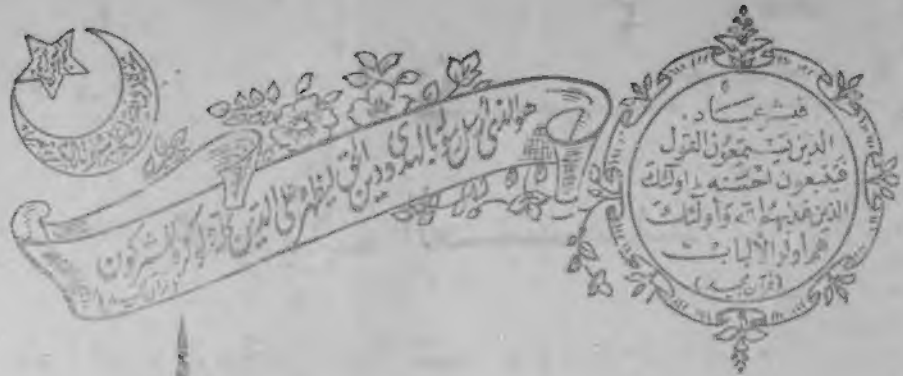 فبشر عباد
الذين يستمعون القول
فيتبعون احسنه اولئك
الذين هديهم الله واولئك
هم اولو الالباب
(قرآن مجید)
هو الذی ارسل رسوله بالهدی ودین الحق لیظهره علی الدین کله ولو کره المشرکون